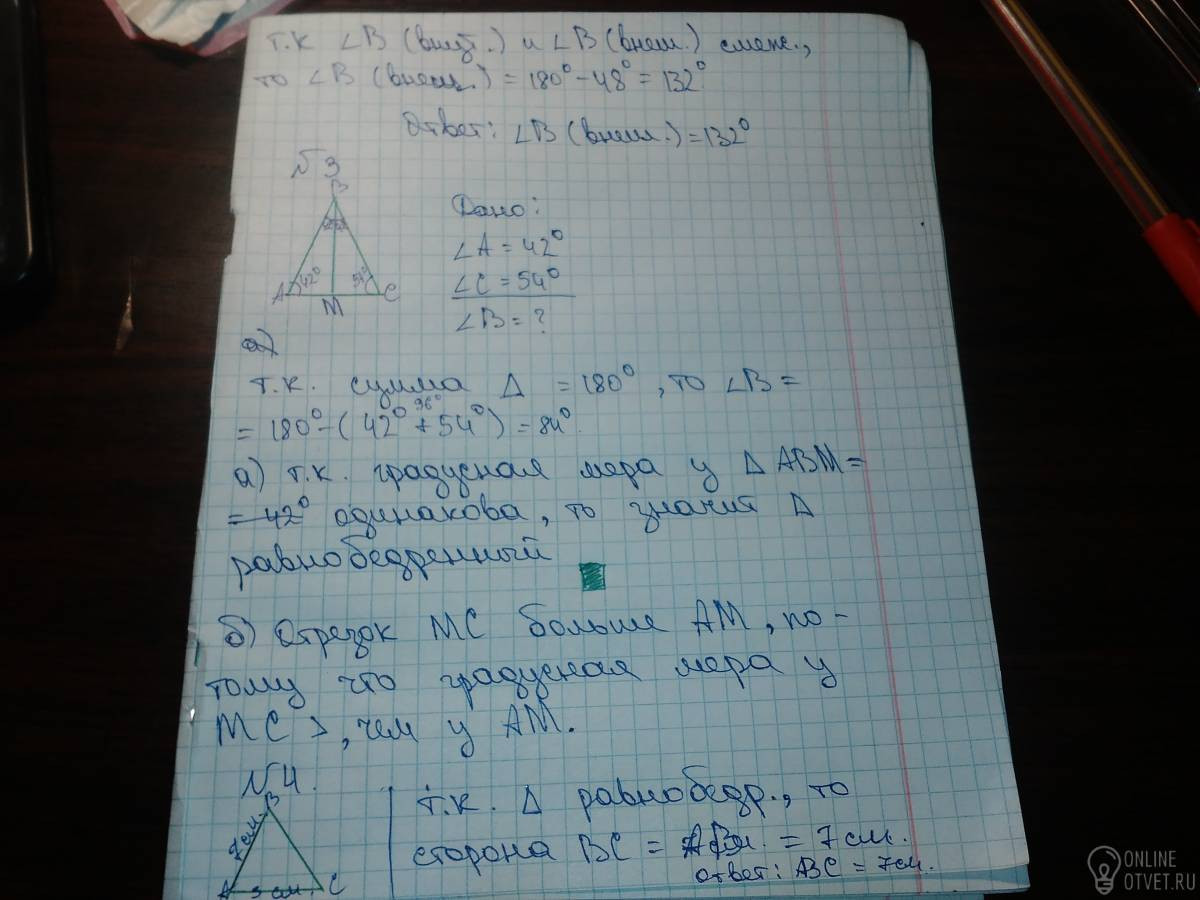 т.к ∠B (внут.) и ∠B (внеш.) смеж.,
то ∠B (внеш.) = 180° - 48° = 132°
Ответ: ∠B (внеш.) = 132°
№3
B
A 42° 54° C
M
Дано:
∠A = 42°
∠C = 54°
∠B = ?
а)
т.к. сумма Δ = 180°, то ∠B =
96°
= 180° - (42° + 54°) = 84°.
а) т.к. градусная мера у Δ ABM =
= 42° одинакова, то значит Δ
равнобедренный
б) Отрезок MC больше AM, по-
тому что градусная мера у
MC >, чем у AM.
№4.
B
7см
A 3 см C
т.к. Δ равнобедр., то
сторона BC = AB = 7 см.
ответ: BC = 7см.
ONLINE
OTVET.RU